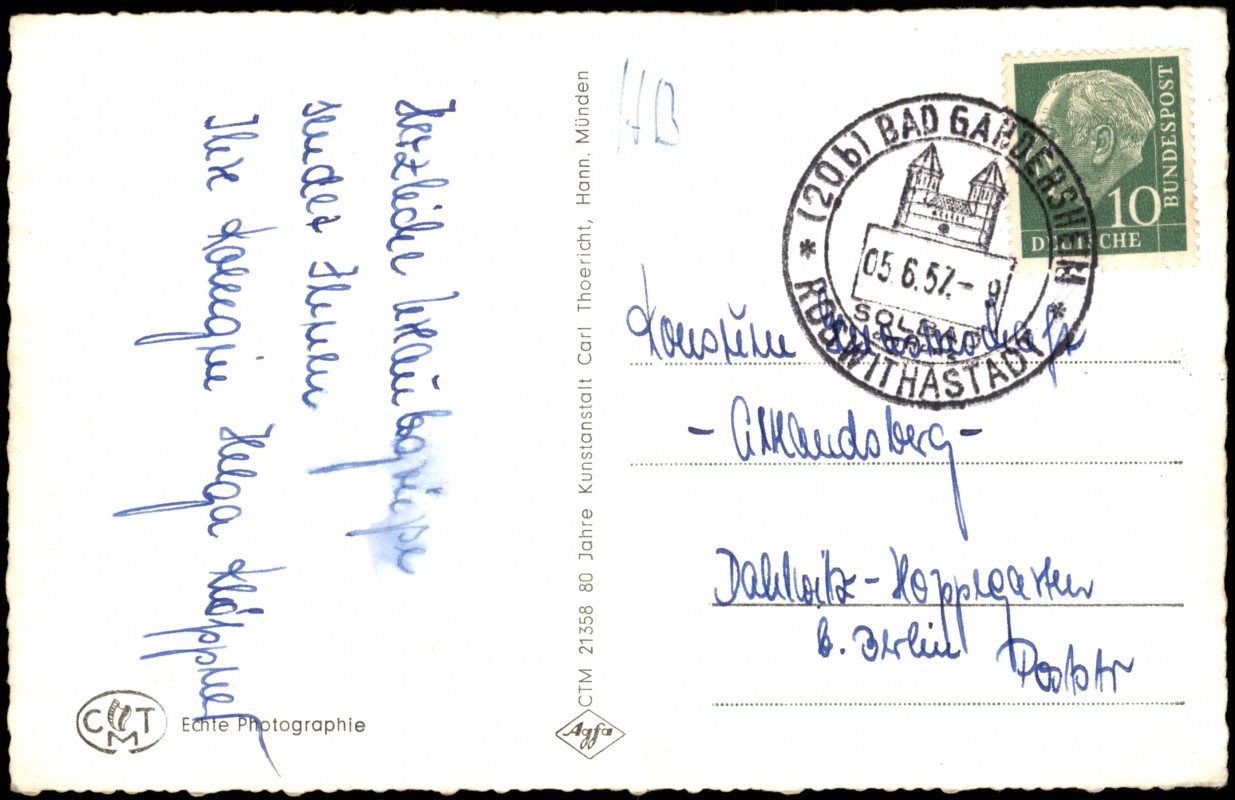 Herzliche Urlaubsgrüße
sendet Ihnen
Ihre Kollegin Helga Klöppner
CMT
Echte Photographie
CTM 21358 80 Jahre Kunstanstalt Carl Thoericht, Hann. Münden
Agfa
HB
(20b) BAD GANDERSHEIM
05.6.57.- 9
SOLBAD
ROSWITHASTADT
DEUTSCHE
BUNDESPOST
10
Konsum
- Altlandsberg -
Dahlwitz-Hoppegarten
b. Berlin
Poststr